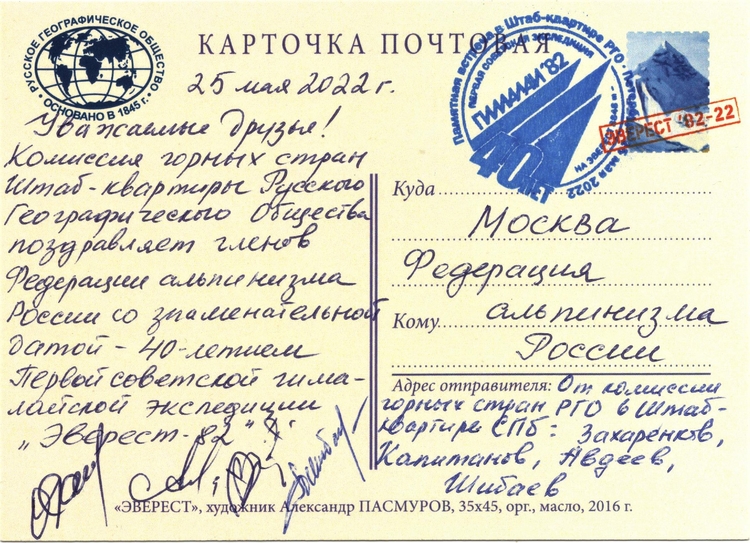 РУССКОЕ ГЕОГРАФИЧЕСКОЕ ОБЩЕСТВО
ОСНОВАНО В 1845 г.
КАРТОЧКА ПОЧТОВАЯ
Памятная встреча в Штаб-квартире РГО
мая 2022
ПЕРВАЯ СОВЕТСКАЯ ЭКСПЕДИЦИЯ
ГИМАЛАИ'82
40 ЛЕТ
ЭВЕРЕСТ '82-22
25 мая 2022 г.
Уважаемые друзья!
Комиссия горных стран
Штаб-квартиры Русского
Географического Общества
поздравляет членов
Федерации альпинизма
России со знаменательной
датой - 40-летием
Первой советской гима-
лайской экспедиции
„Эверест-82"
Куда
Москва
Федерация
Кому
альпинизма
России
Адрес отправителя: От комиссии
горных стран РГО в Штаб-
квартире СПб: Захаренков,
Капитанов, Авдеев,
Шибаев
«ЭВЕРЕСТ», художник Александр ПАСМУРОВ, 35х45, орг., масло, 2016 г.